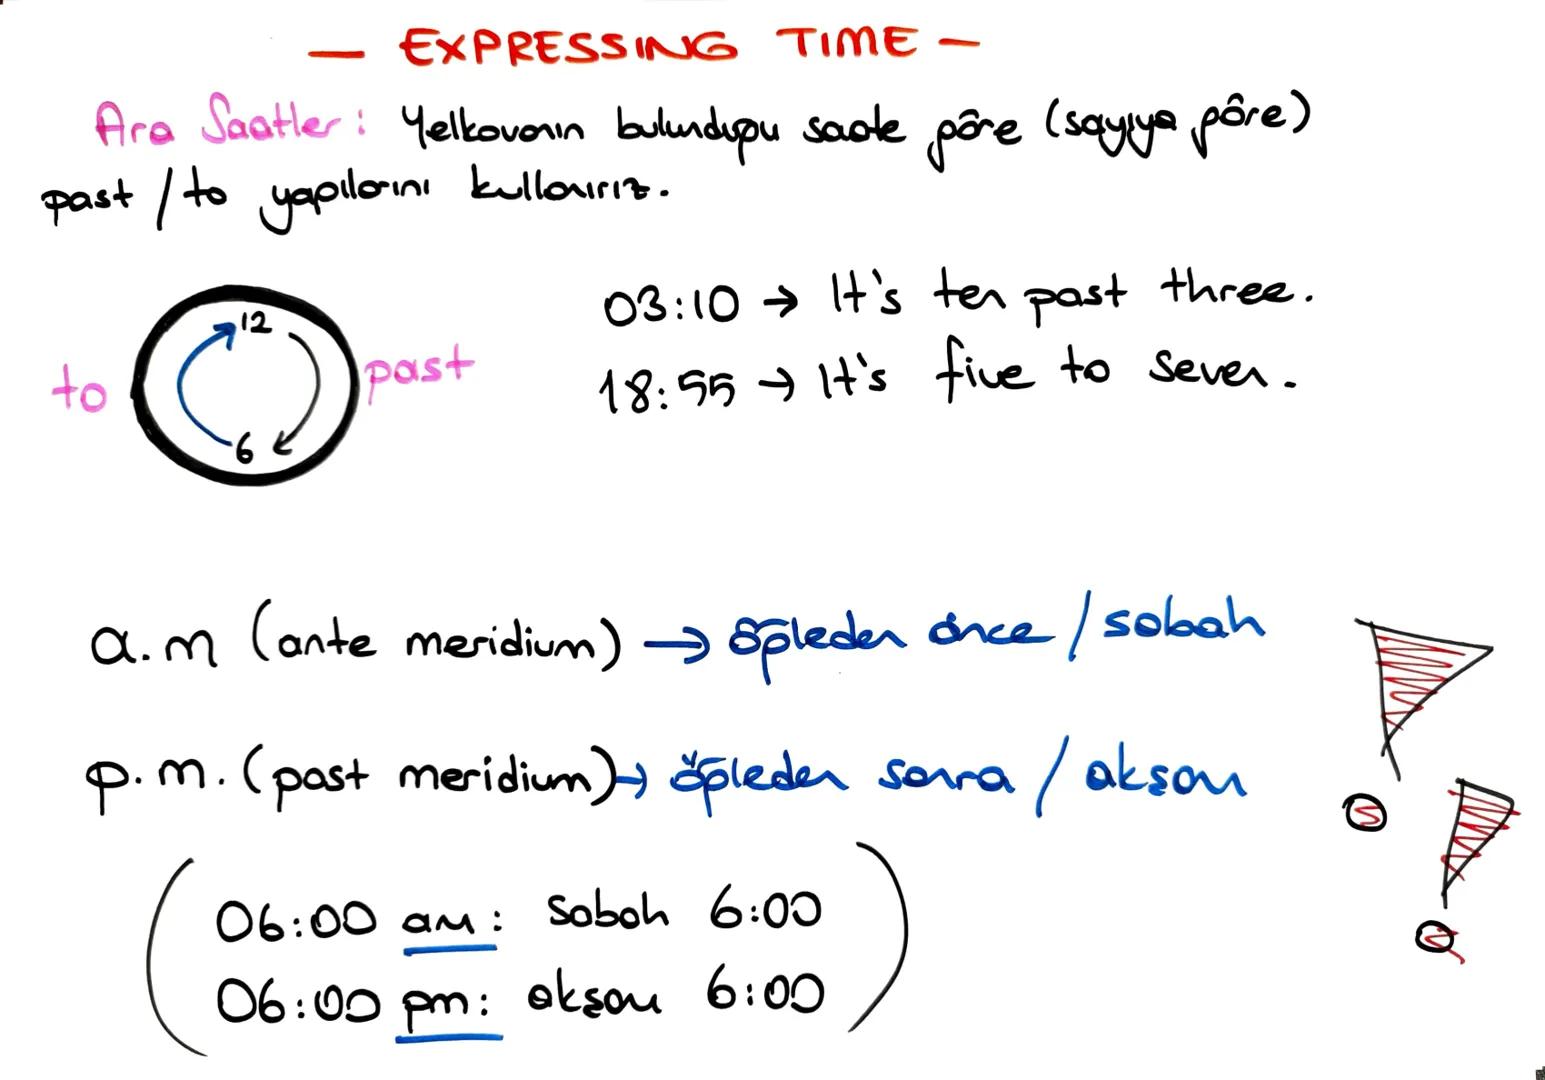 — EXPRESSING TIME —
Ara Saatler: Yelkovanın bulunduğu saate göre (sayıya göre)
past / to yapılarını kullanırız.
12
to
past
6
03:10 → It's ten past three.
18:55 → It's five to seven.
a.m (ante meridium) → öğleden önce / sabah
p.m. (past meridium) → öğleden sonra / akşam
06:00 am: sabah 6:00
06:00 pm: akşam 6:00